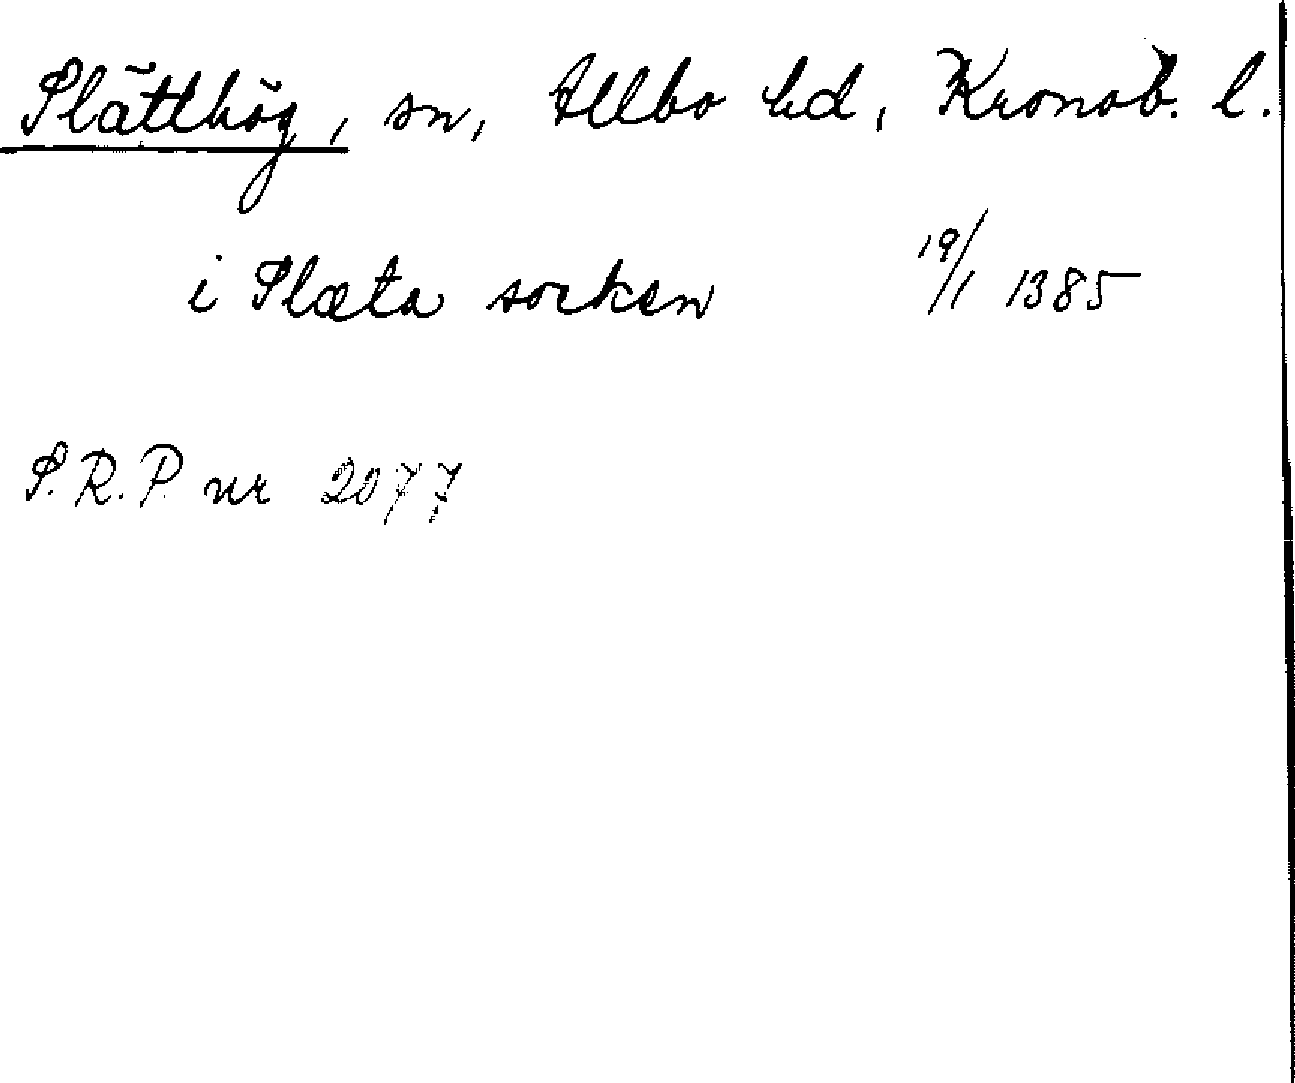 Slätthög, sn, Allbo hd, Kronob. l.
i Slæta socken 19/1 1385
S.R.P. nr 2077